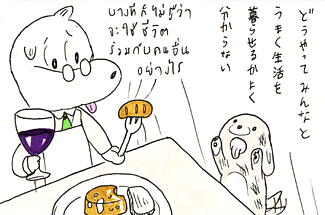 บางทีก็ไม่รู้ว่า
จะใช้ชีวิต
ร่วมกับคนอื่น
อย่างไร
どうやってみんなと
うまく生活を
暮らせるかよく
分からない